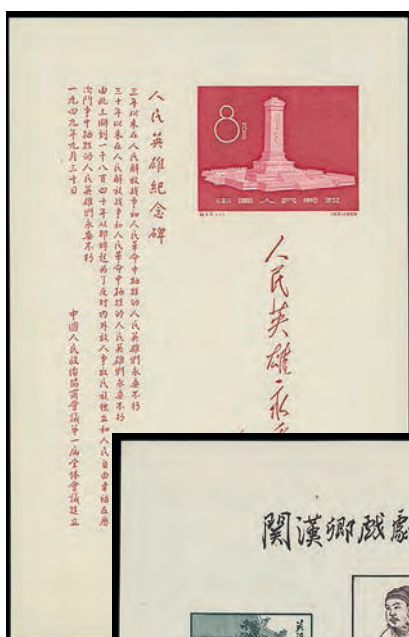 8分
中國人民郵政
人民英雄永
人民英雄紀念碑
三年以来在人民解放战争和人民革命中牺牲的人民英雄們永垂不朽
三十年以来在人民解放战争和人民革命中牺牲的人民英雄們永垂不朽
由此上溯到一千八百四十年从那時起為了反对内外敌人争取民族独立和人民自由幸福在歷
次鬥争中牺牲的人民英雄們永垂不朽
一九四九年九月三十日
中國人民政治協商會議第一屆全體會議建立
關漢卿戲劇